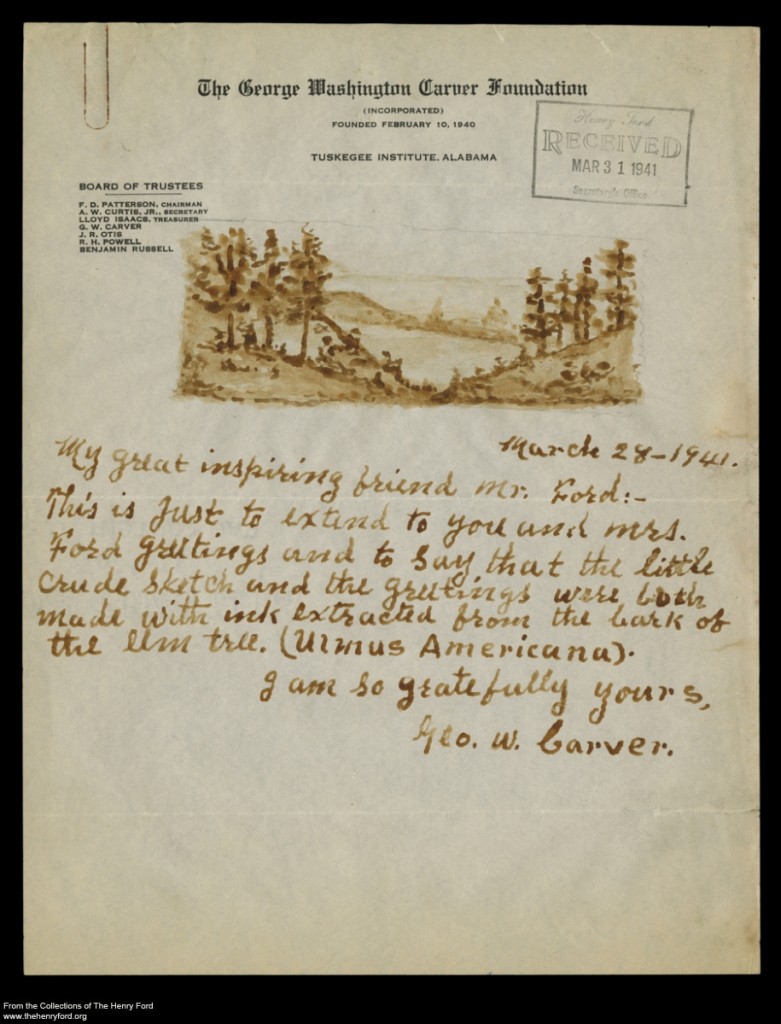 The George Washington Carver Foundation
(INCORPORATED)
FOUNDED FEBRUARY 10, 1940
TUSKEGEE INSTITUTE, ALABAMA
Henry Ford
RECEIVED
MAR 31 1941
Secretary's Office
BOARD OF TRUSTEES
F. D. PATTERSON, CHAIRMAN
A. W. CURTIS, JR., SECRETARY
LLOYD ISAACS, TREASURER
G. W. CARVER
J. R. OTIS
R. H. POWELL
BENJAMIN RUSSELL
March 28-1941.
My great inspiring friend Mr. Ford:-
This is Just to extend to you and mrs.
Ford greetings and to say that the little
crude sketch and the greetings were both
made with ink extracted from the bark of
the elm tree. (Ulmus Americana).
I am so gratefully yours,
Geo. W. Carver.
From the Collections of The Henry Ford
www.thehenryford.org